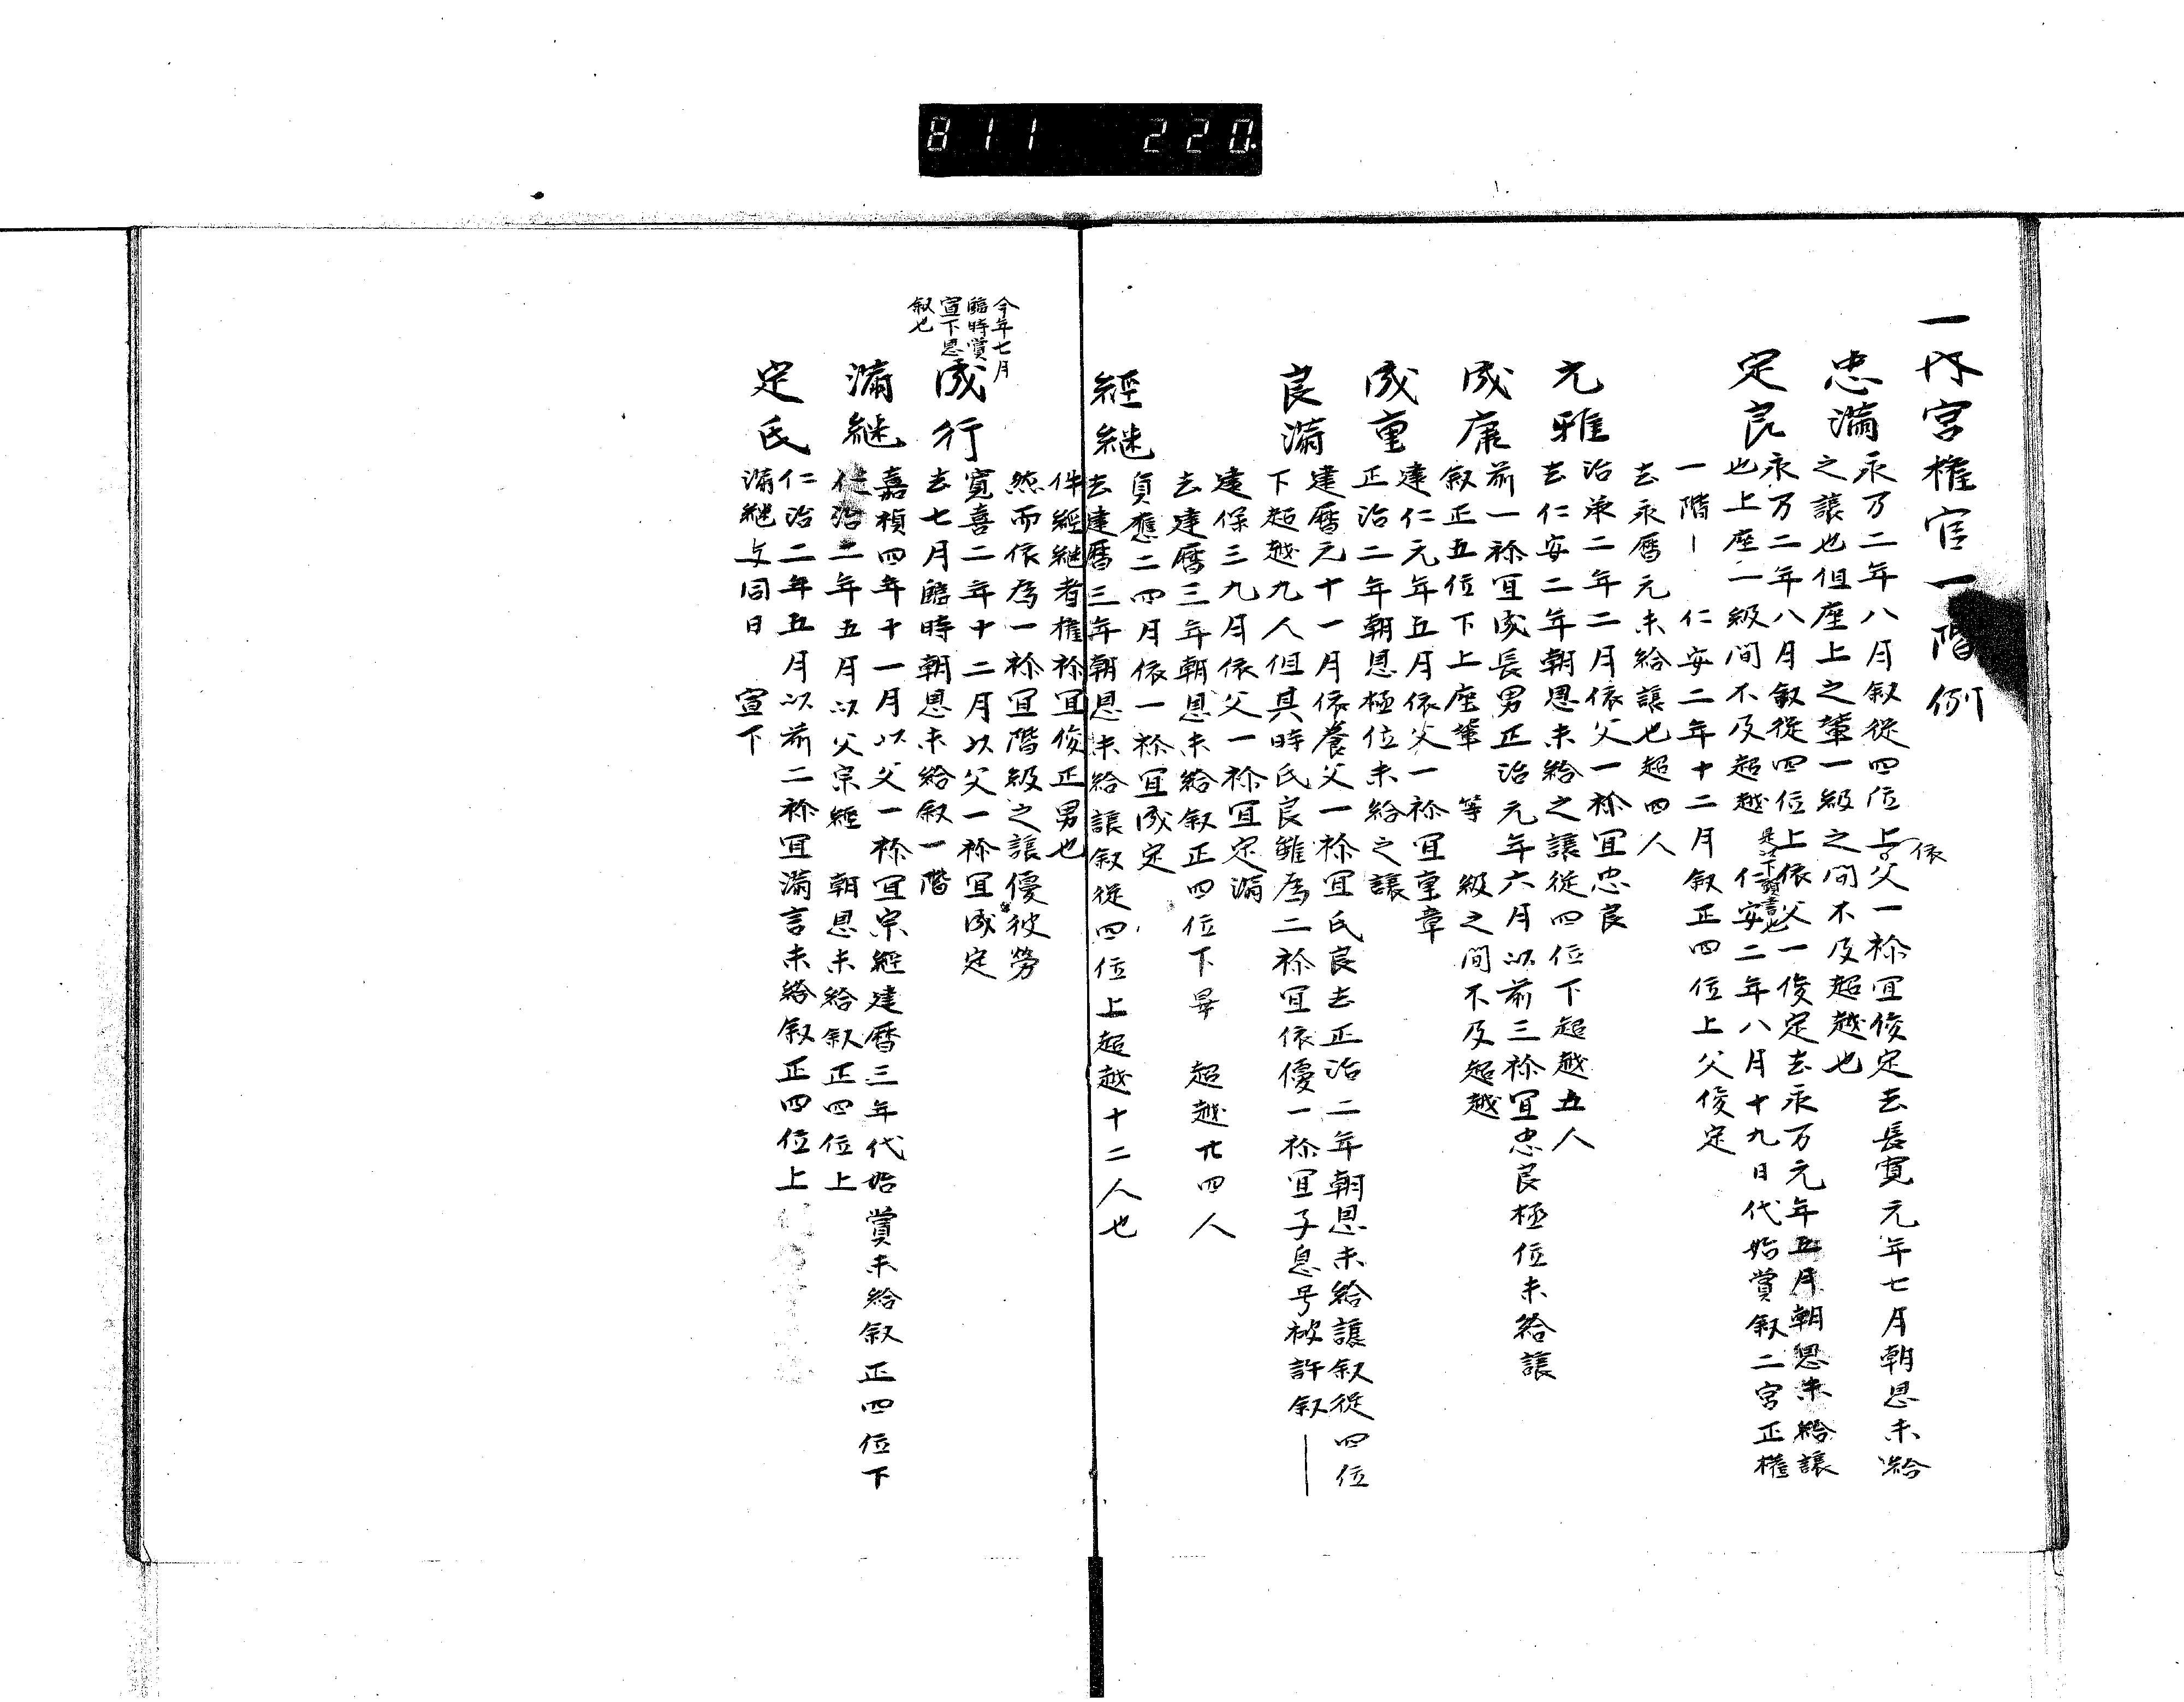 811 220.
一 内宮権官一階例
忠満
永万二年八月叙従四位上依父一祢宜俊定去長寛元年七月朝恩未給
之譲也但座上之輩一級之間不及超越也
定良
永万二年八月叙従四位上依父一俊定去永万元年五月朝恩未給譲
也上座一級間不及超越 是以下頭書也 仁安二年八月十九日代始賞叙二宮正権
一階｜ 仁安二年十二月叙正四位上父俊定
去永暦元未給譲也超四人
元雅
治承二年二月依父一祢宜忠良
去仁安二年朝恩未給之譲従四位下超越五人
成康
前一祢宜成長男正治元年六月以前三祢宜忠良極位未給譲
叙正五位下上座輩 等 級之間不及超越
成重
建仁元年五月依父一祢宜重章
正治二年朝恩極位未給之譲
良満
建暦元十一月依養父一祢宜氏良去正治二年朝恩未給譲叙従四位
下超越九人但其時氏良雖為二祢宜依優一祢宜子息号被許叙｜
建保三九月依父一祢宜定満
去建暦三年朝恩未給叙正四位下畢 超越廿四人
経継
貞應二四月依一祢宜成定
去建暦三年朝恩未給譲叙従四位上超越十二人也
件経継者権祢宜俊正男也
然而依為一祢宜階級之譲優彼労
成行
寛喜二年十二月以父一祢宜成定
去七月臨時朝恩未給叙一階
今年七月
臨時賞
宣下恩
叙也
満継
嘉禎四年十一月以父一祢宜宗経建暦三年代始賞未給叙正四位下
仁治二年五月以父宗経 朝恩未給叙正四位上
定氏
仁治二年五月以前二祢宜満言未給叙正四位上
満継与同日 宣下